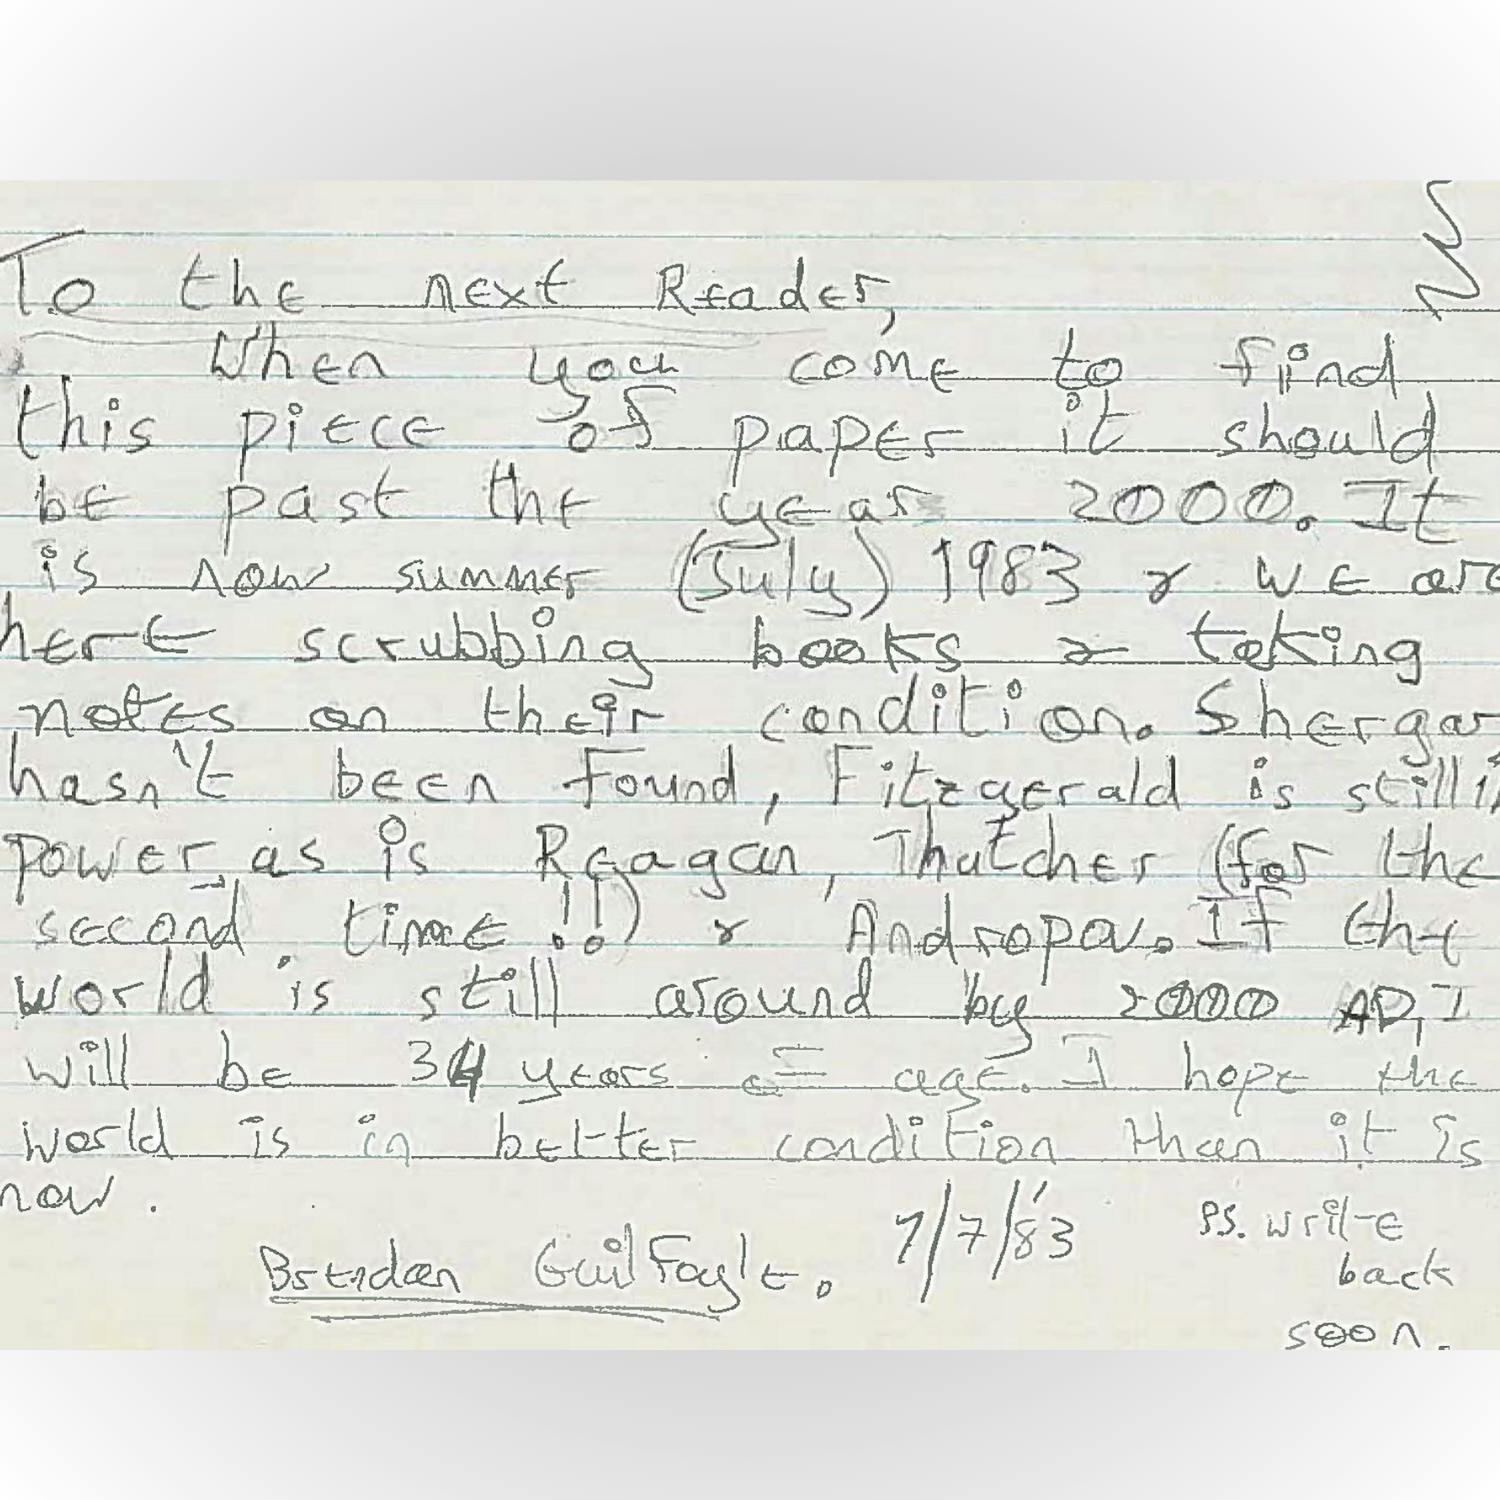 To the next Reader,
When you come to find
this piece of paper it should
be past the year 2000. It
is now summer (July) 1983 & we are
here scrubbing books & taking
notes on their condition. Shergar
hasn't been found, Fitzgerald is still in
power, as is Reagan, Thatcher (for the
second time!!) & Andropov. If the
world is still around by 2000 AD, I
will be 34 years of age. I hope the
world is in better condition than it is
now.
Brendan Guilfoyle. 7/7/'83
PS. write
back
soon.